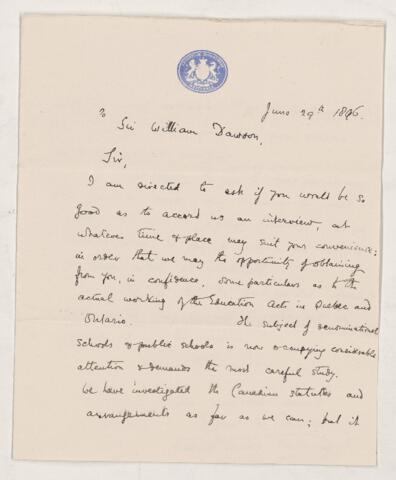 June 29th 1896.
To
Sir William Dawson,
Sir,
I am directed to ask if you would be so
good as to accord us an interview, at
whatever time & place may suit your convenience;
in order that we may the opportunity of obtaining
from you, in confidence, some particulars as to the
actual working of the Education Acts in Quebec and
Ontario. The subject of denominational
schools & public schools is now occupying considerable
attention & demands the most careful study.
We have investigated the Canadian statutes and
arrangements as far as we can; but it